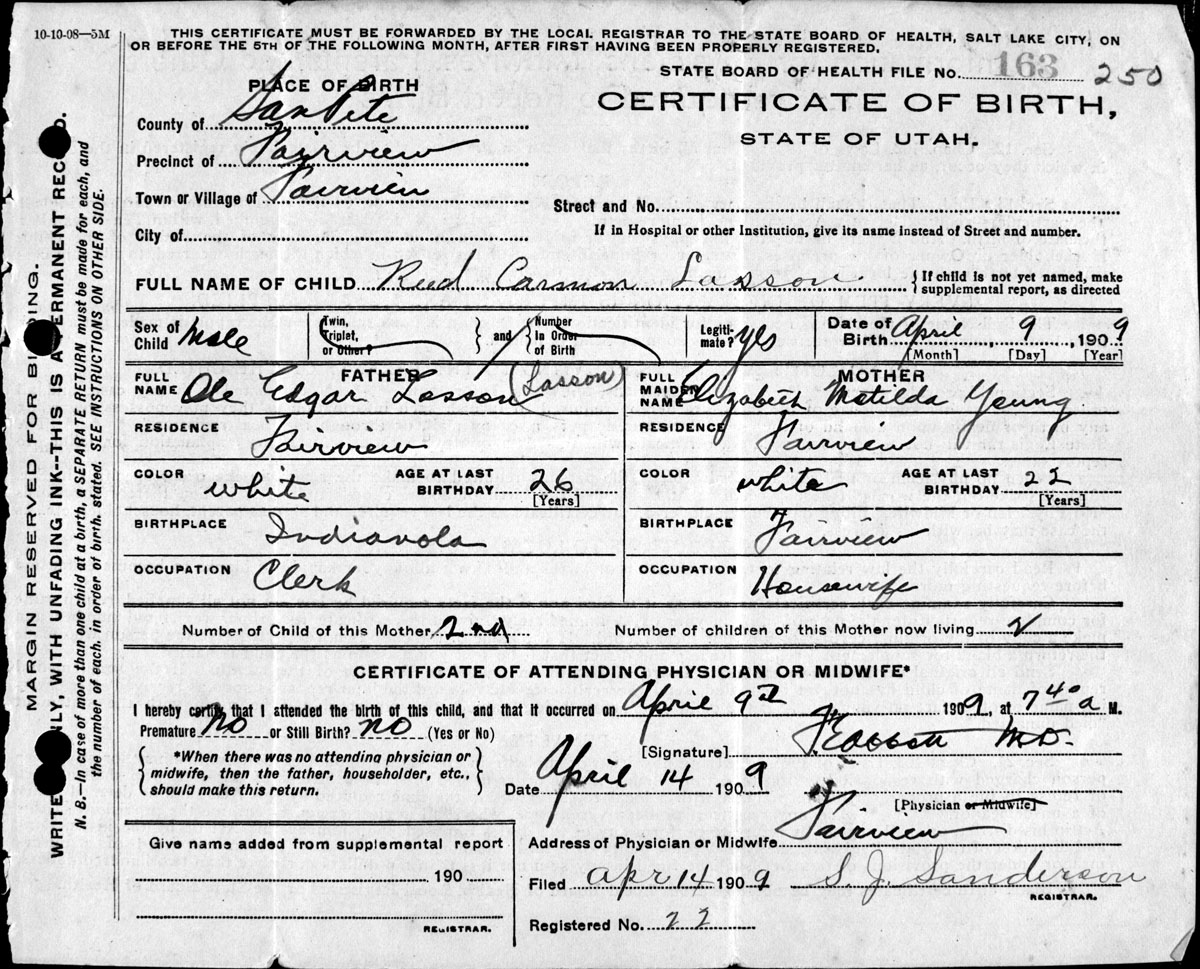 10-10-08—5M
THIS CERTIFICATE MUST BE FORWARDED BY THE LOCAL REGISTRAR TO THE STATE BOARD OF HEALTH, SALT LAKE CITY, ON
OR BEFORE THE 5TH OF THE FOLLOWING MONTH, AFTER FIRST HAVING BEEN PROPERLY REGISTERED.
STATE BOARD OF HEALTH FILE No. 163 250
CERTIFICATE OF BIRTH,
STATE OF UTAH.
PLACE OF BIRTH
County of SanPete
Precinct of Fairview
Town or Village of Fairview
Street and No.
City of
If in Hospital or other Institution, give its name instead of Street and number.
FULL NAME OF CHILD Reed Carmon Lasson { If child is not yet named, make supplemental report, as directed
Sex of Child Male Twin, Triplet, or Other? } and { Number In Order of Birth Legiti- mate? yes Date of Birth April 9, 1909
[Month] [Day] [Year]
FATHER
FULL NAME Ole Edgar Lasson (Lasson)
RESIDENCE Fairview
COLOR white AGE AT LAST BIRTHDAY 26 [Years]
BIRTHPLACE Indianola
OCCUPATION Clerk
MOTHER
FULL MAIDEN NAME Elizabeth Matilda Young
RESIDENCE Fairview
COLOR white AGE AT LAST BIRTHDAY 22 [Years]
BIRTHPLACE Fairview
OCCUPATION Housewife
Number of Child of this Mother 2nd Number of children of this Mother now living 2
CERTIFICATE OF ATTENDING PHYSICIAN OR MIDWIFE*
I hereby certify that I attended the birth of this child, and that it occurred on April 9th 1909, at 7 40 a M.
Premature No or Still Birth? No (Yes or No)
[Signature] MD.
*When there was no attending physician or
midwife, then the father, householder, etc.,
should make this return.
Date April 14 1909
[Physician or Midwife]
Address of Physician or Midwife Fairview
Give name added from supplemental report
190
REGISTRAR.
Filed Apr 14 1909 S. J. Sanderson
REGISTRAR.
Registered No. 22
MARGIN RESERVED FOR BINDING.
WRITE ONLY, WITH UNFADING INK--THIS IS A PERMANENT RECORD.
N. B.—In case of more than one child at a birth, a SEPARATE RETURN must be made for each, and
the number of each, in order of birth, stated. SEE INSTRUCTIONS ON OTHER SIDE.